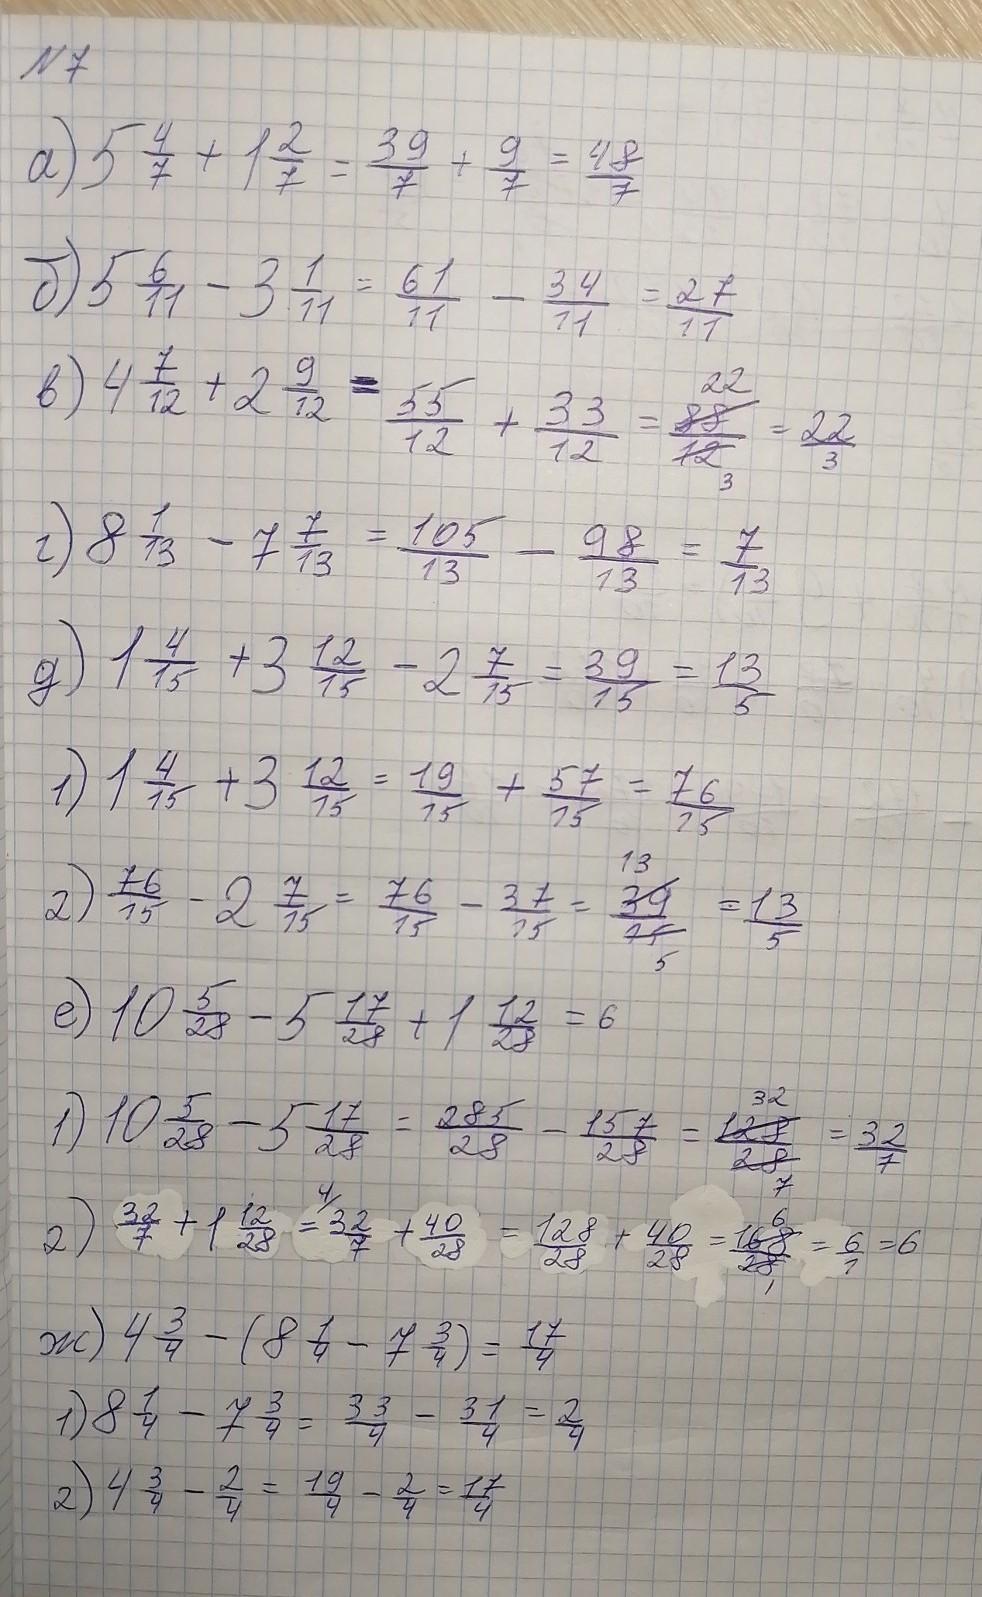 N7
а) 5 4/7 + 1 2/7 = 39/7 + 9/7 = 48/7
б) 5 6/11 - 3 1/11 = 61/11 - 34/11 = 27/11
в) 4 7/12 + 2 9/12 = 55/12 + 33/12 = 88/12 22 3 = 22/3
г) 8 1/13 - 7 7/13 = 105/13 - 98/13 = 7/13
д) 1 4/15 + 3 12/15 - 2 7/15 = 39/15 = 13/5
1) 1 4/15 + 3 12/15 = 19/15 + 57/15 = 76/15
2) 76/15 - 2 7/15 = 76/15 - 37/15 = 39/15 13 5 = 13/5
е) 10 5/28 - 5 17/28 + 1 12/28 = 6
1) 10 5/28 - 5 17/28 = 285/28 - 157/28 = 128/28 32 7 = 32/7
2) 32/7 + 1 12/28 = 4/ 32/7 + 40/28 = 128/28 + 40/28 = 168/28 6 1 = 6/1 = 6
ж) 4 3/4 - (8 1/4 - 7 3/4) = 17/4
1) 8 1/4 - 7 3/4 = 33/4 - 31/4 = 2/4
2) 4 3/4 - 2/4 = 19/4 - 2/4 = 17/4